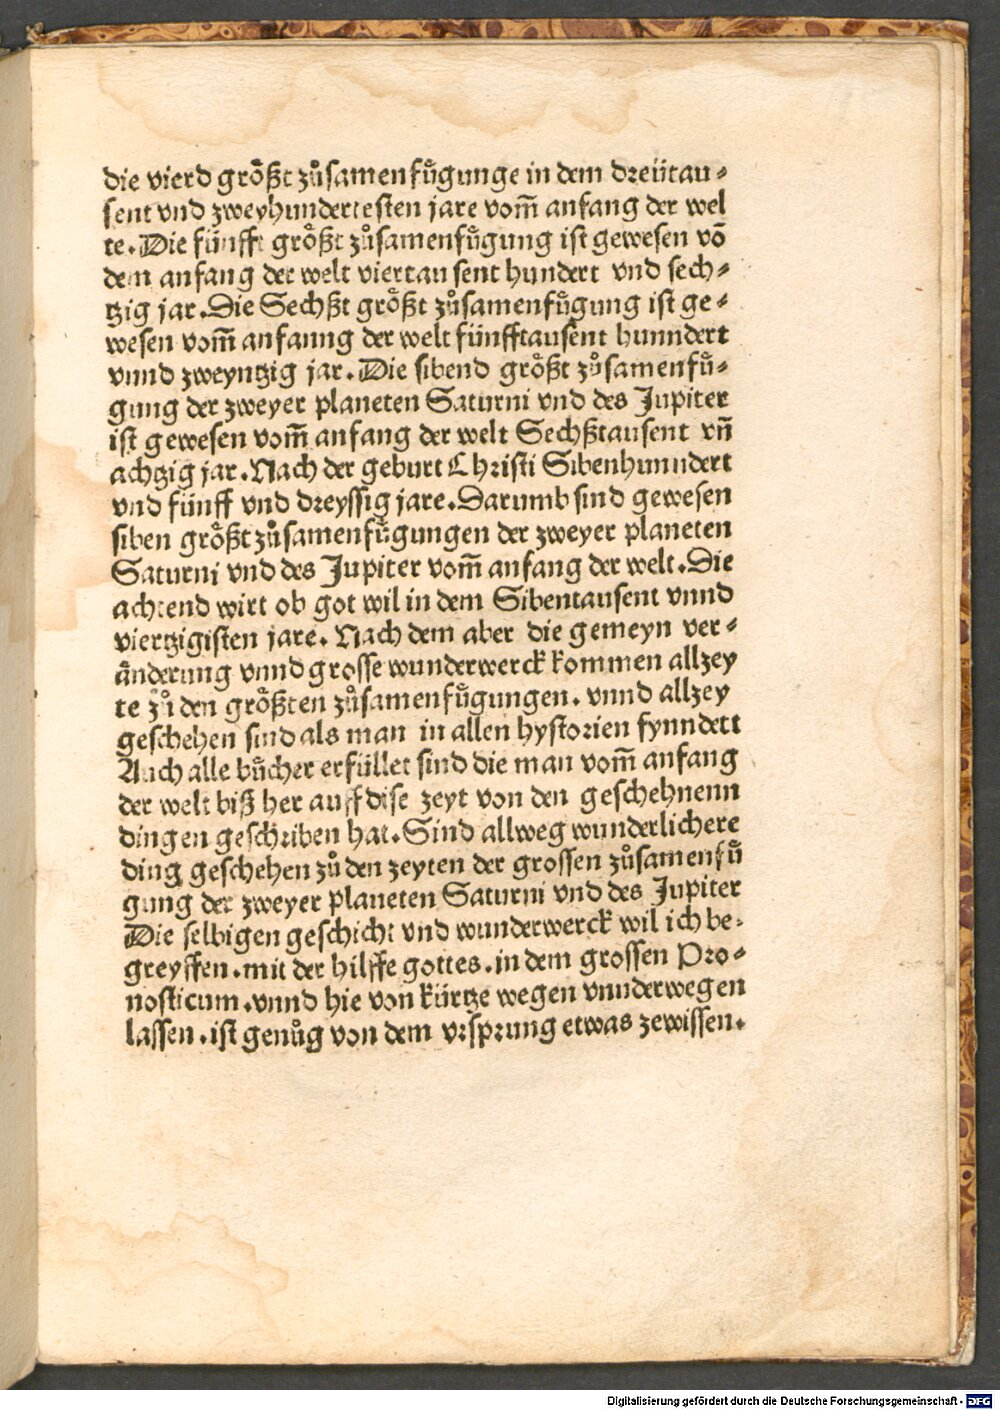 die vierd grŏ̈ßt zůsamenfu̇̈gunge in dem dreütau⸗
sent vnd zweyhundertesten jare vom̃ anfang der wel
te. Die fünfft größt zůsamenfügung ist gewesen võ
dem anfang der welt viertausent hundert vnd sech⸗
tzig jar. Die Sechßt größt zůsamenfügung ist ge⸗
wesen vom̃ anfanng der welt fünfftausent hunndert
vnnd zweyntzig jar. Die sibend größt zůsamenfü⸗
gung der zweyer planeten Saturni vnd des Jupiter
ist gewesen vom̃ anfang der welt Sechßtausent vñ
achtzig jar. Nach der geburt Christi Sibenhunndert
vnd fünff vnd dreyssig jare. Darumb sind gewesen
siben größt zůsamenfügungen der zweyer planeten
Saturni vnd des Jupiter vom̃ anfang der welt. Die
achtend wirt ob got wil in dem Sibentausent vnnd
viertzigisten jare. Nach dem aber die gemeyn ver⸗
änderung vnnd grosse wunderwerck kommen allzey
te zů den größten zůsamenfügungen. vnnd allzey
geschehen sind als man in allen hystorien fynndett
Auch alle bücher erfüllet sind die man vom̃ anfang
der welt biß her auff dise zeyt von den geschehnenn
dingen geschriben hat. Sind allweg wunderlichere
ding geschehen zů den zeyten der grossen zůsamenfü
gung der zweyer planeten Saturni vnd des Jupiter
Die selbigen geschicht vnd wunderwerck wil ich be⸗
greyffen. mit der hilffe gottes. in dem grossen Pro⸗
nosticum. vnnd hie von kürtze wegen vnnderwegen
lassen. ist genůg von dem vrsprung etwas zewissen.
Digitalisierung gefördert durch die Deutsche Forschungsgemeinschaft - DFG